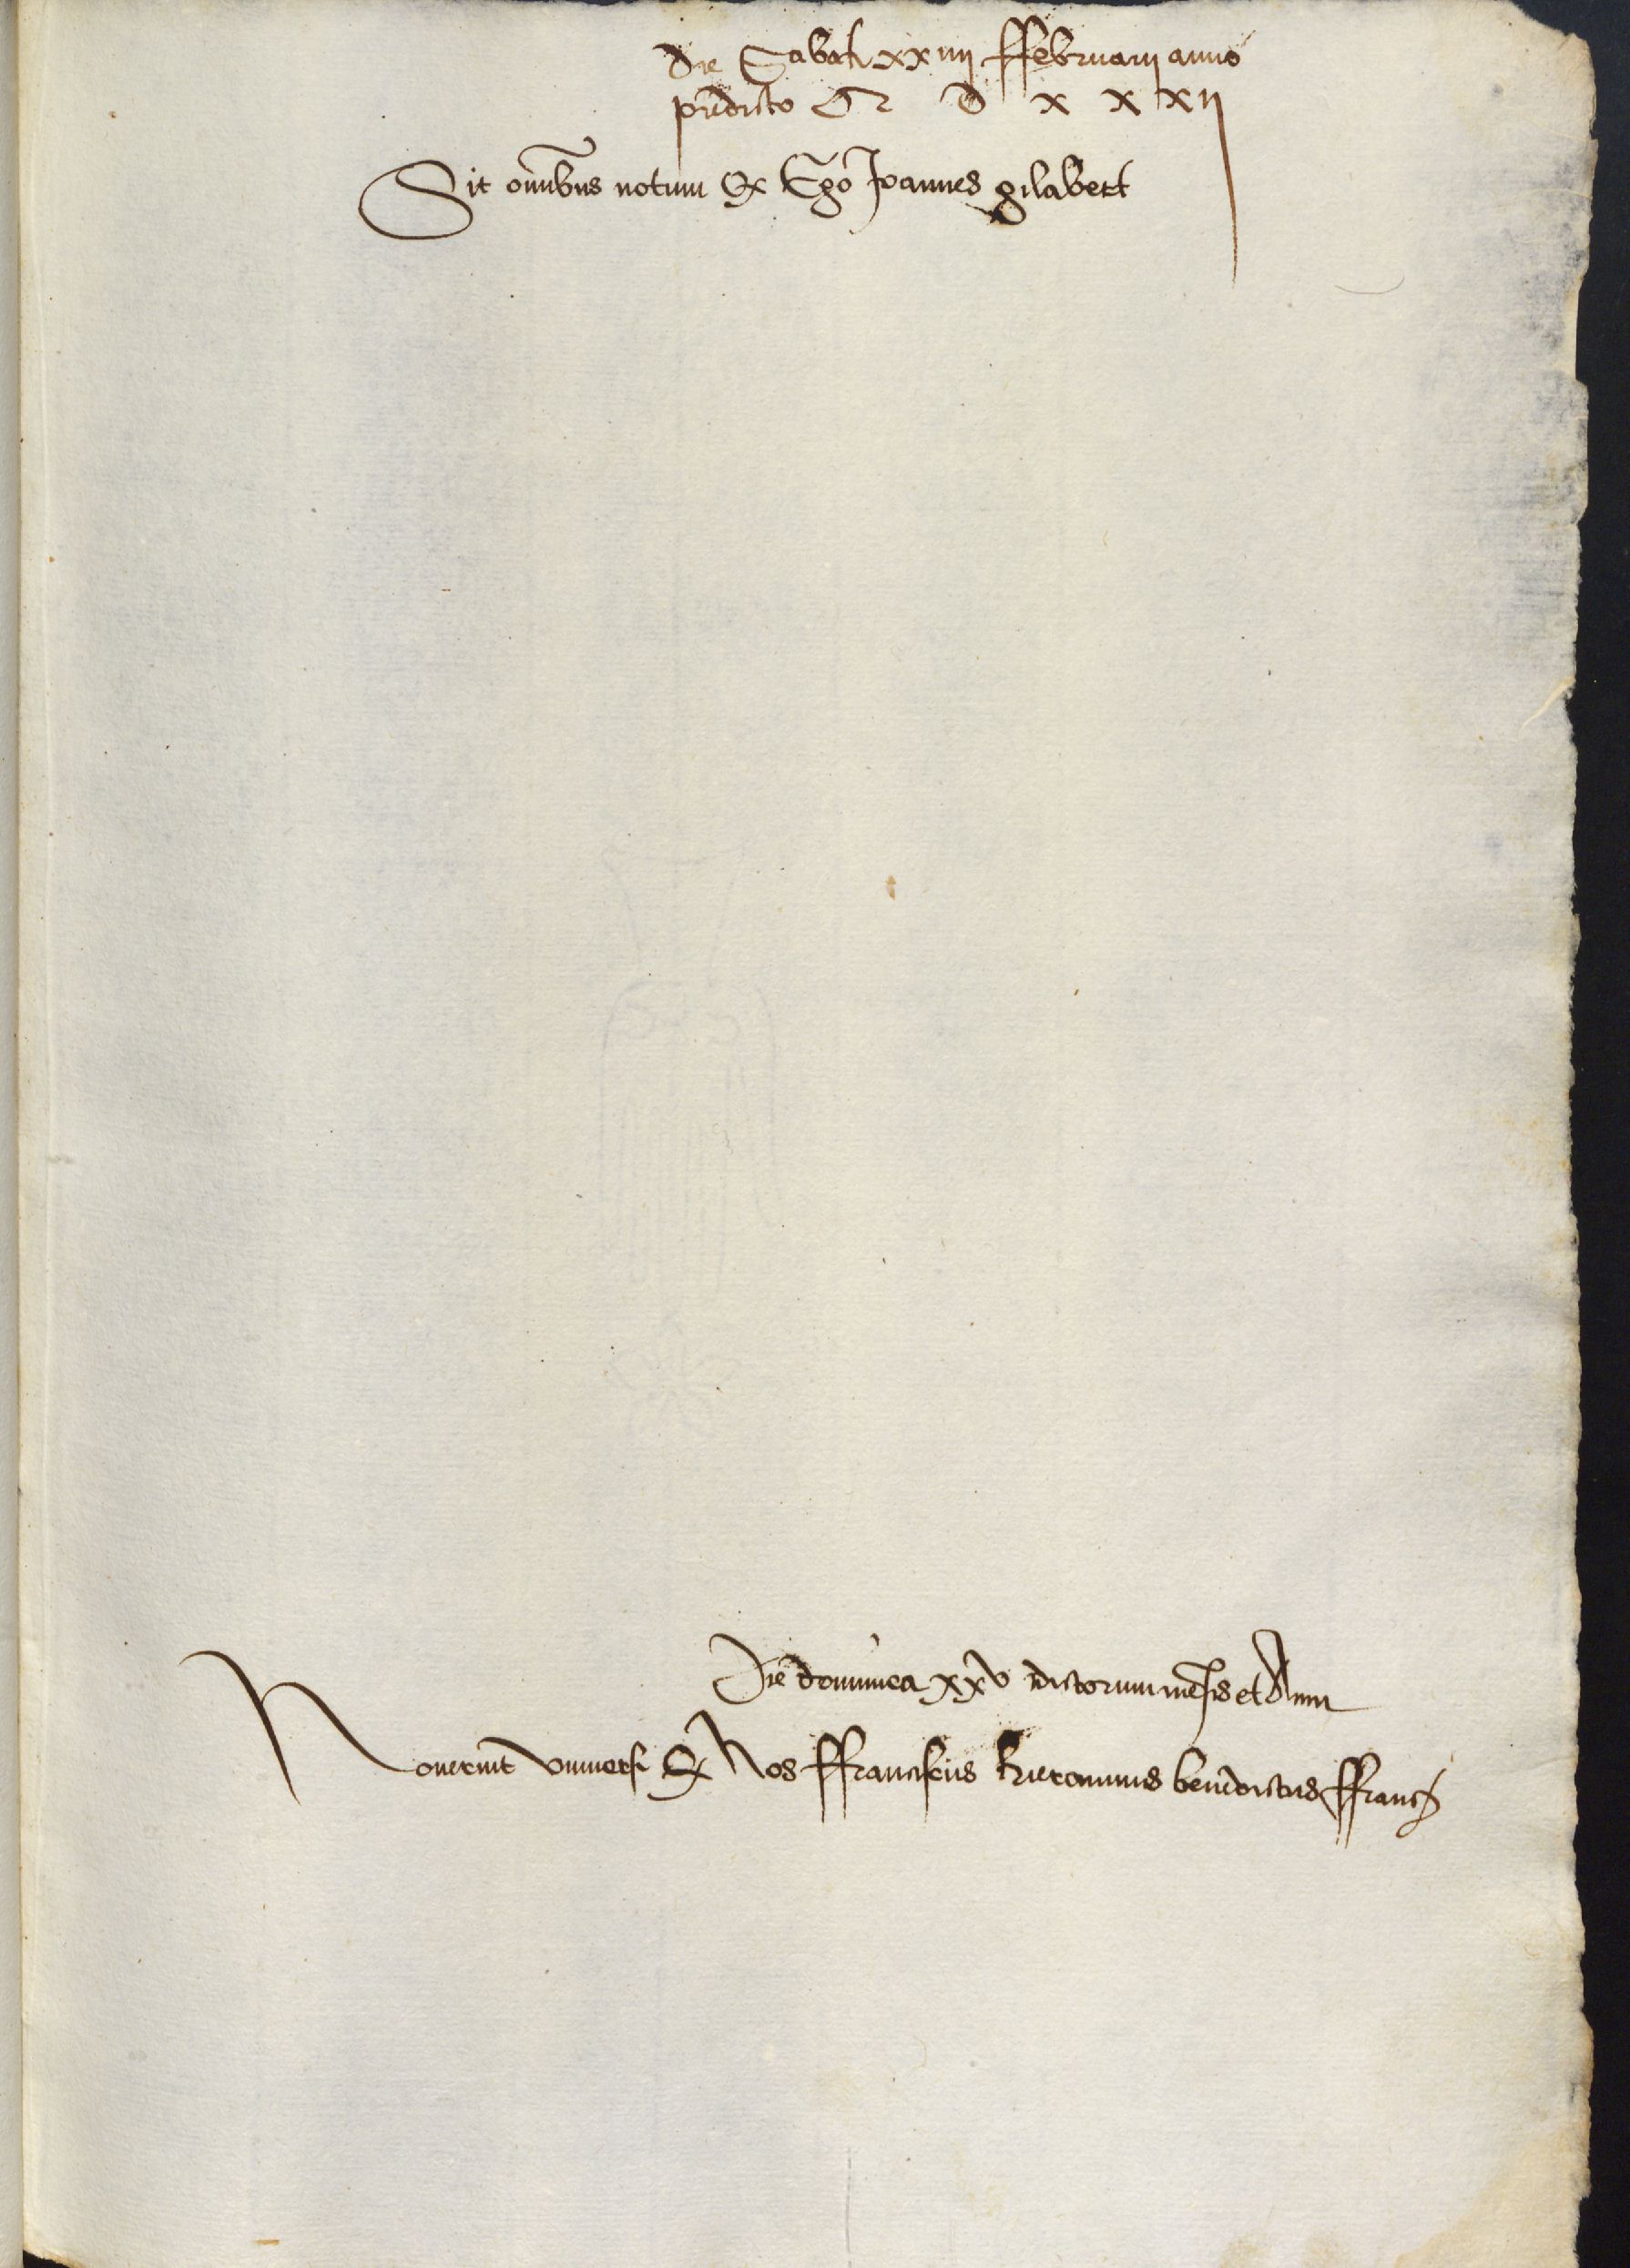 die Sabati xxiiii ffebruarii anno
predicto M D x x xii
Sit omnibus notum Q Ego Joannes gilabert
Die dominica xxv dictorum mensis et Anni
Noverint universi Q Nos ffranciscus hieronimus benedictus ffranc